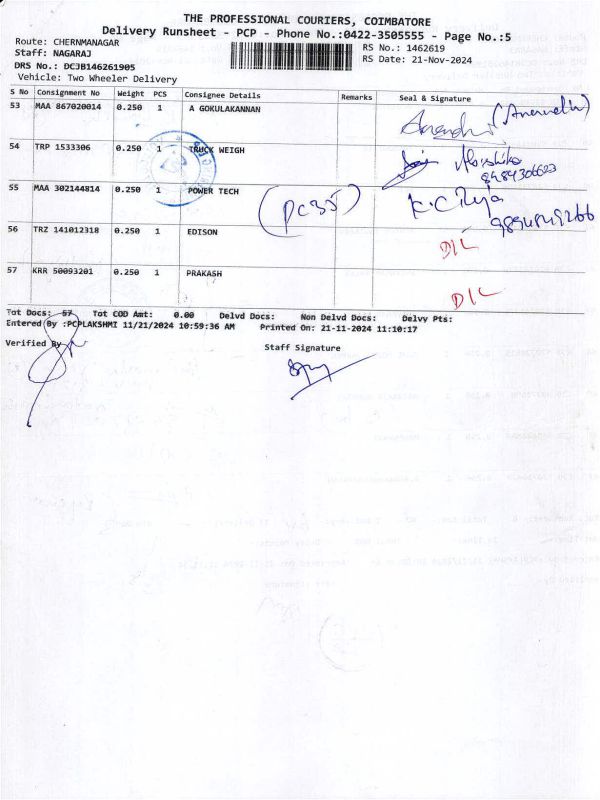 THE PROFESSIONAL COURIERS, COIMBATORE
Delivery Runsheet - PCP - Phone No.:0422-3505555 - Page No.:5
Route: CHERNMANAGAR RS No.: 1462619
Staff: NAGARAJ RS Date: 21-Nov-2024
DRS No.: DCJB146261905
Vehicle: Two Wheeler Delivery
S No Consignment No Weight PCS Consignee Details Remarks Seal & Signature
53 MAA 867020014 0.250 1 A GOKULAKANNAN
54 TRP 1533306 0.250 1 TRUCK WEIGH
55 MAA 302144814 0.250 1 POWER TECH (PC35) K.C Raja
56 TRZ 141012318 0.250 1 EDISON D/L
57 KRR 50093201 0.250 1 PRAKASH D/L
Tot Docs: 57 Tot COD Amt: 0.00 Delvd Docs: Non Delvd Docs: Delvy Pts:
Entered By :PCPLAKSHMI 11/21/2024 10:59:36 AM Printed On: 21-11-2024 11:10:17
Verified By Staff Signature